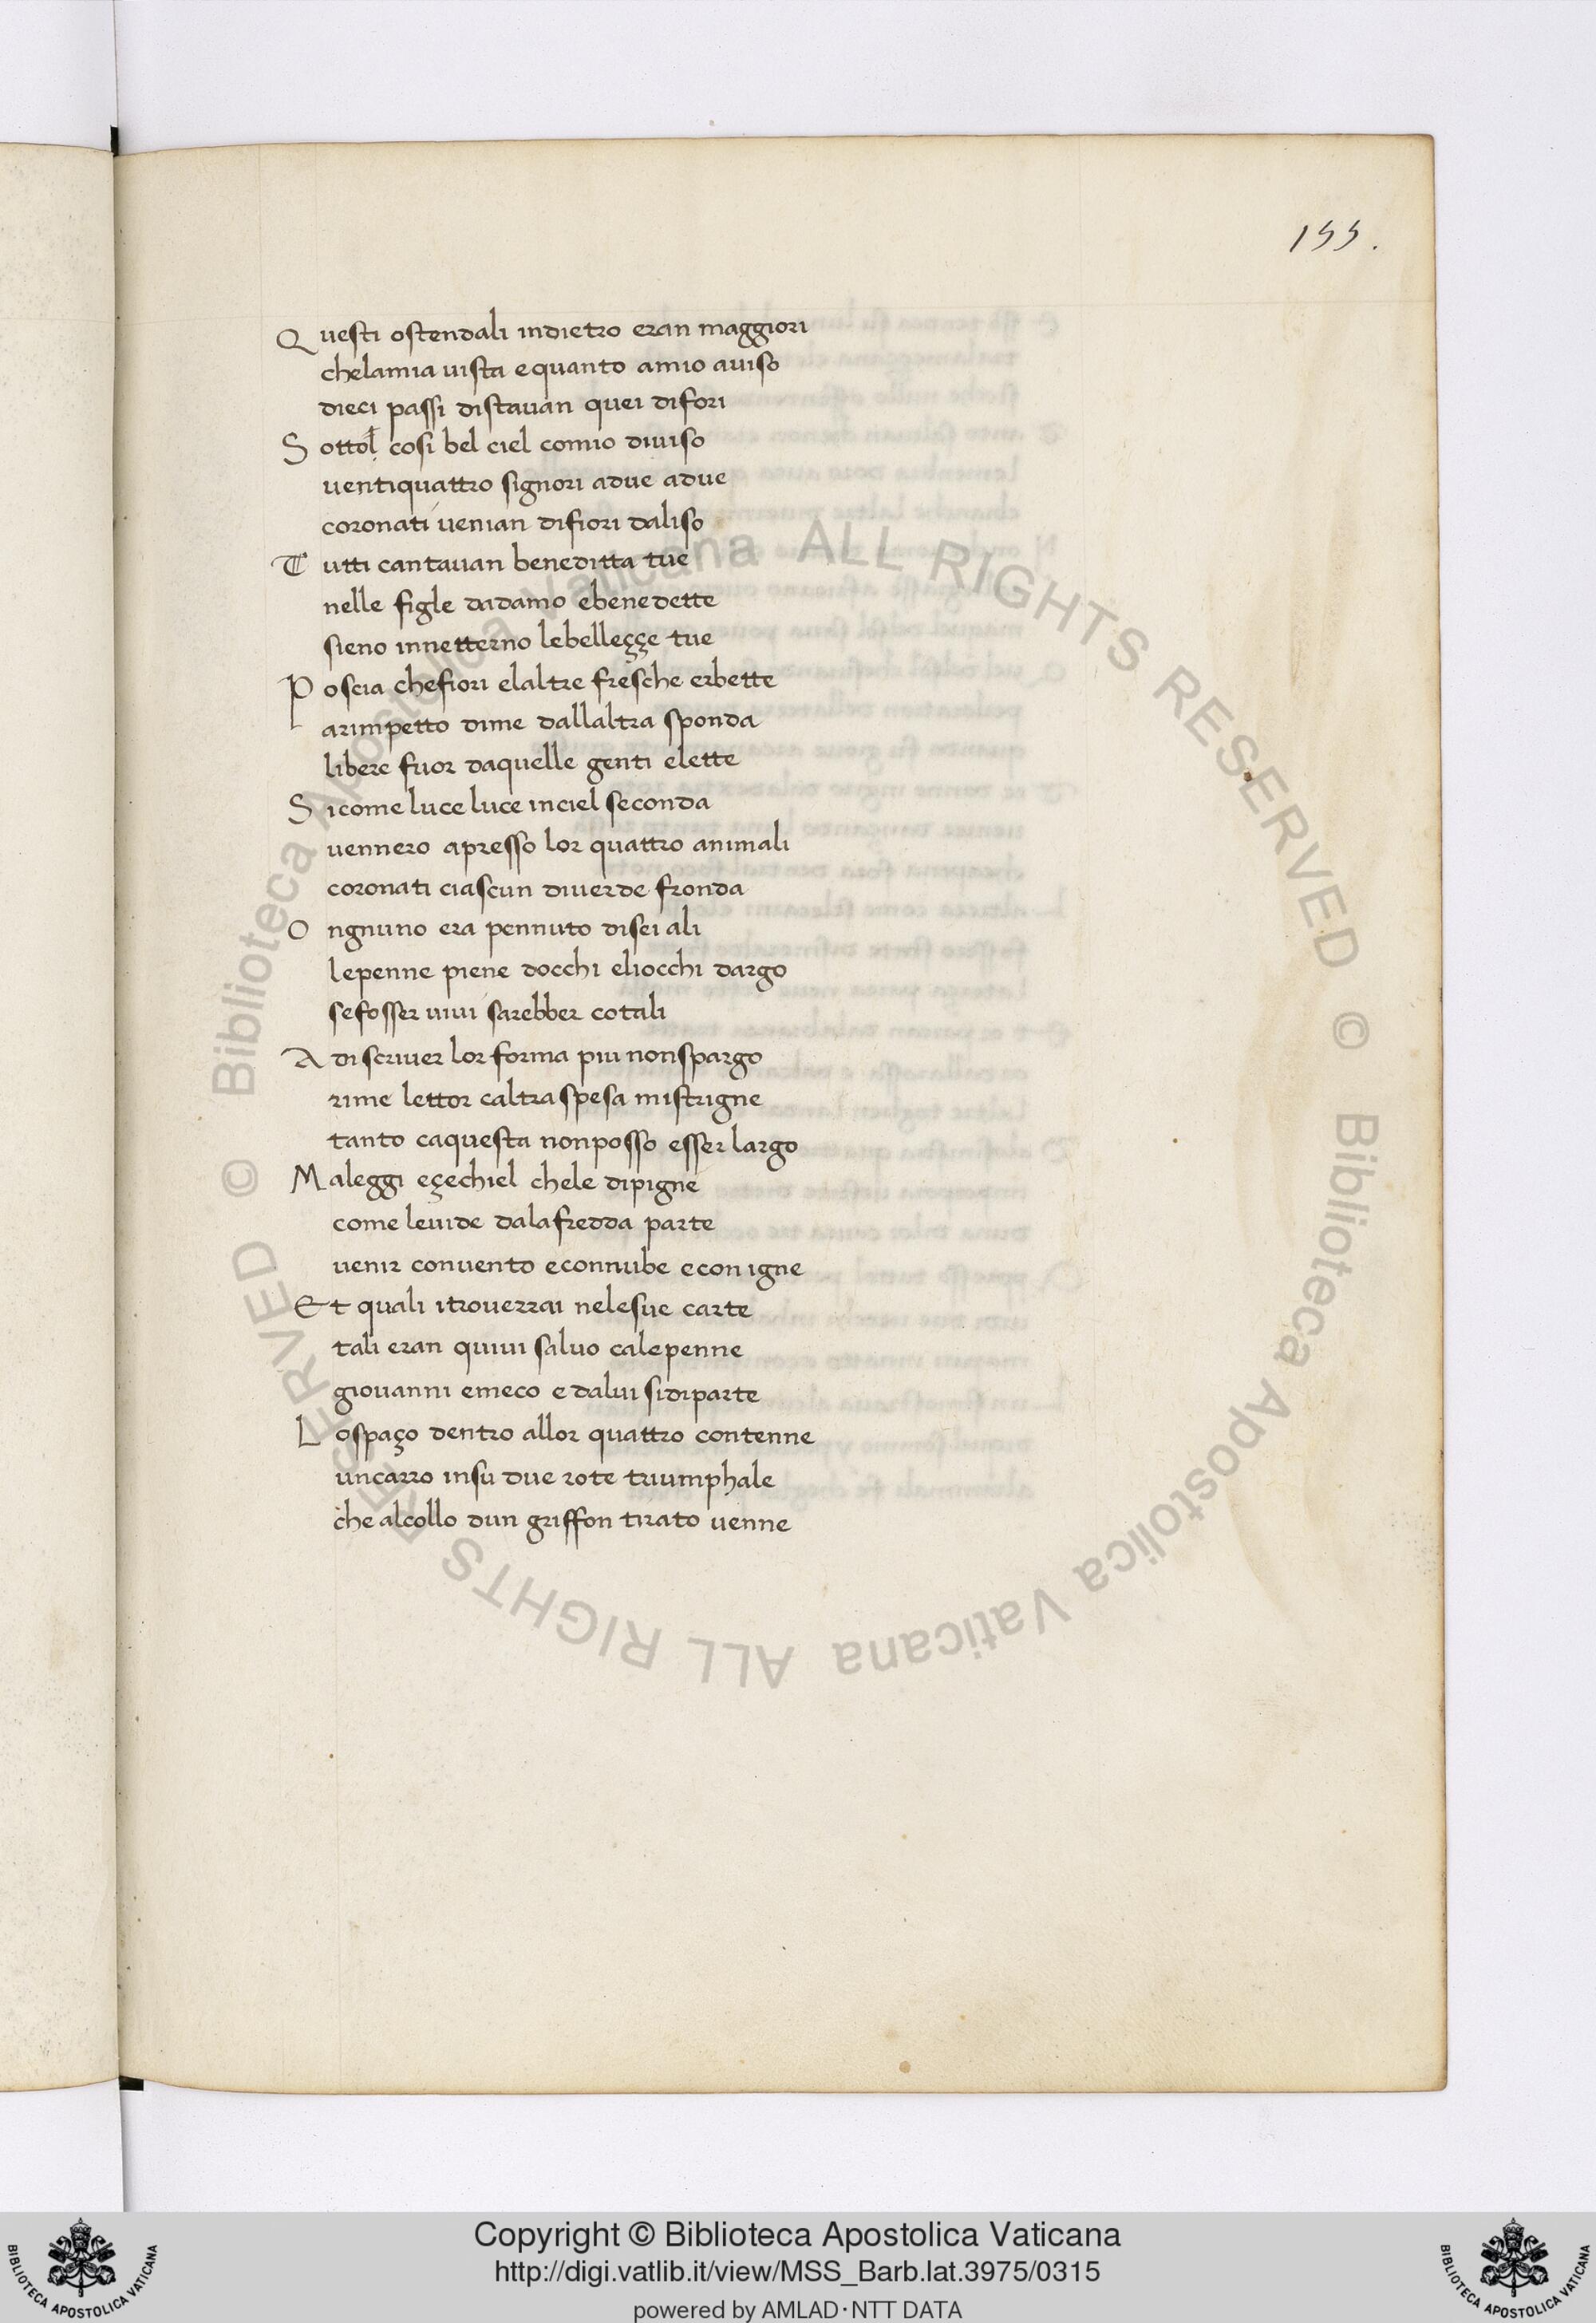 155.
Questi ostendali indietro eran maggiori
chelamia uista equanto amio auiso
dieci passi distauan quei difori
Sottol cosi bel ciel comio diuiso
uentiquattro signori adue adue
coronati uenian difiori daliso
Tutti cantauan beneditta tue
nelle figle dadamo ebenedette
sieno innetterno lebelleççe tue
Poscia chefiori elaltre fresche erbette
arimpetto dime dallaltra sponda
libere fuor daquelle genti elette
Sicome luce luce inciel seconda
uennero apresso lor quattro animali
coronati ciascun diuerde fronda
Ongnuno era pennuto disei ali
lepenne piene docchi eliocchi dargo
sefosser uiui sarebber cotali
Adiscriuer lor forma piu nonspargo
rime lettor caltra spesa mistrigne
tanto caquesta nonposso esser largo
Maleggi eçechiel chele dipigne
come leuide dalafredda parte
uenir conuento econnube econ igne
Et quali itrouerrai nelesue carte
tali eran quiui saluo calepenne
giouanni emeco edalui sidiparte
Lospaço dentro allor quattro contenne
uncarro insu due rote triumphale
che alcollo dun griffon tirato uenne
© Biblioteca Apostolica Vaticana ALL RIGHTS RESERVED © Biblioteca Apostolica Vaticana ALL RIGHTS RESERVED
Copyright © Biblioteca Apostolica Vaticana
http://digi.vatlib.it/view/MSS_Barb.lat.3975/0315
powered by AMLAD·NTT DATA
BIBLIOTECA APOSTOLICA VATICANA
BIBLIOTECA APOSTOLICA VATICANA